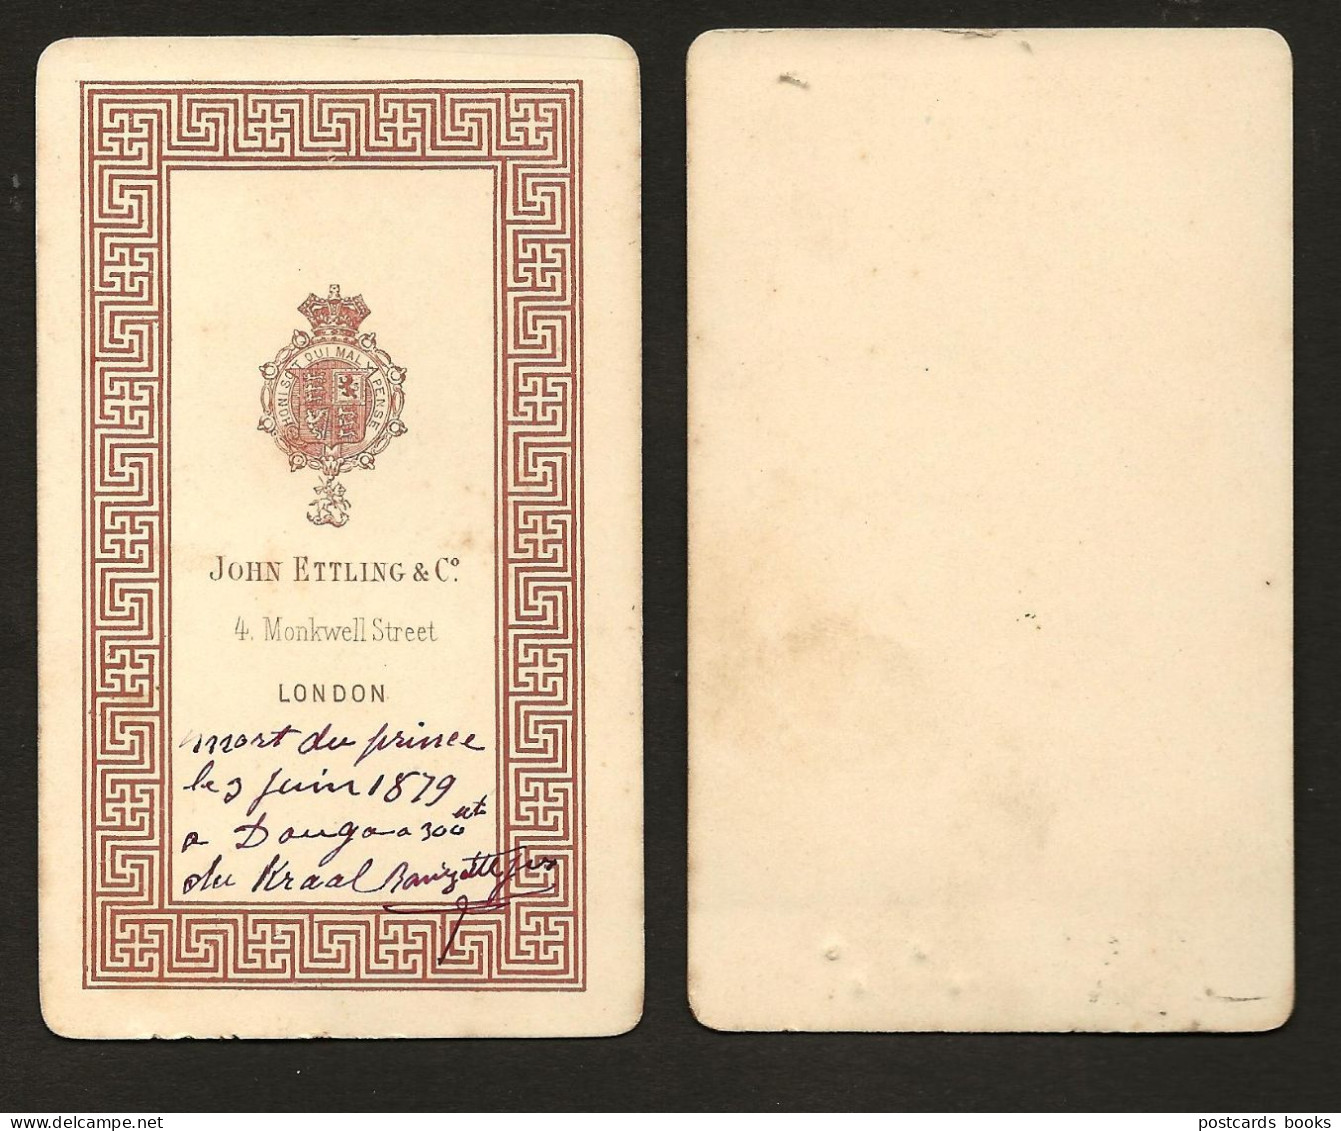 HONI SOIT QUI MAL Y PENSE
JOHN ETTLING & Co.
4. Monkwell Street
LONDON
mort du prince
le 3 juin 1879
a 300
du Kraal
postcards books